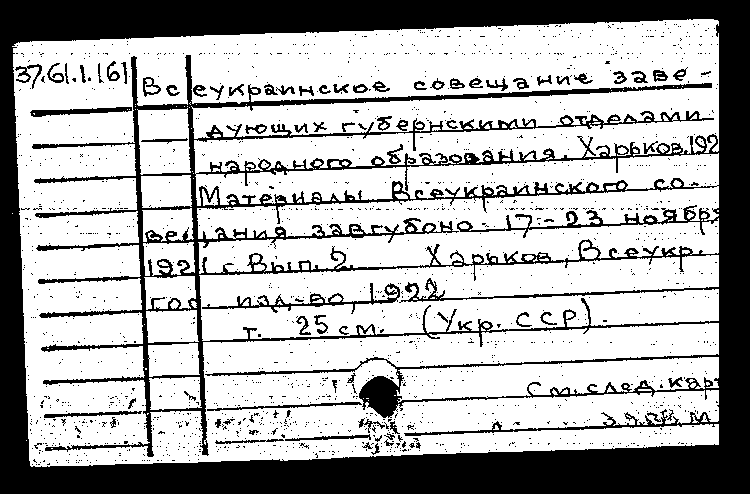 37.61.1.161 Всеукраинское совещание заве-
дующих губернскими отделами
народного образования. Харьков.192
Материалы Всеукраинского со-
вещания завгубоно. 17-23 ноябр
1921 г. Вып. 2. Харьков, Всеукр.
гос. изд-во, 1922
т. 25 см. (Укр. ССР).
См. след. кар